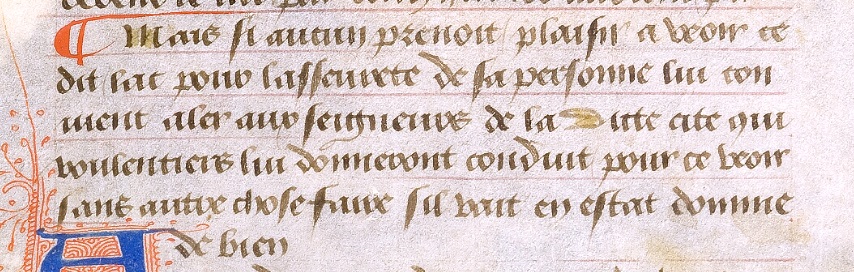 ¶ Mais si aucun prenoit plaisir a veoir ce
dit lac pour lasseurete de sa personne lui con
uient aler aux seigneurs de la ditte cite qui
voulentiers lui donneront conduit pour ce veoir
sans autre chose faire sil vait en estat domme
de bien